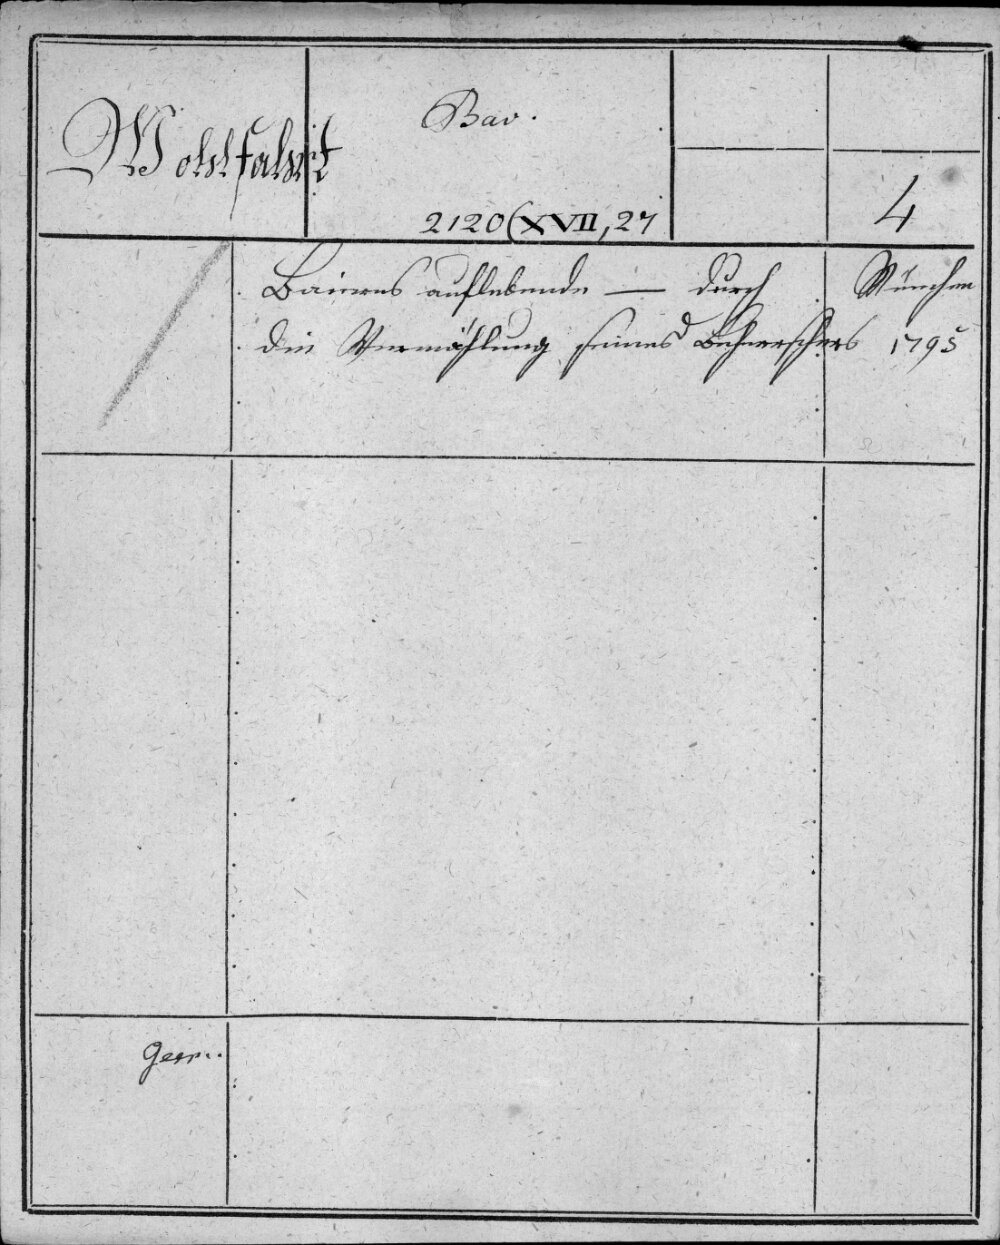 Wohlfahrt
Bav.
2120 (XVII, 27
4
Baierns auflebende — durch
die Vermählung seines Beherrschers
München
1795